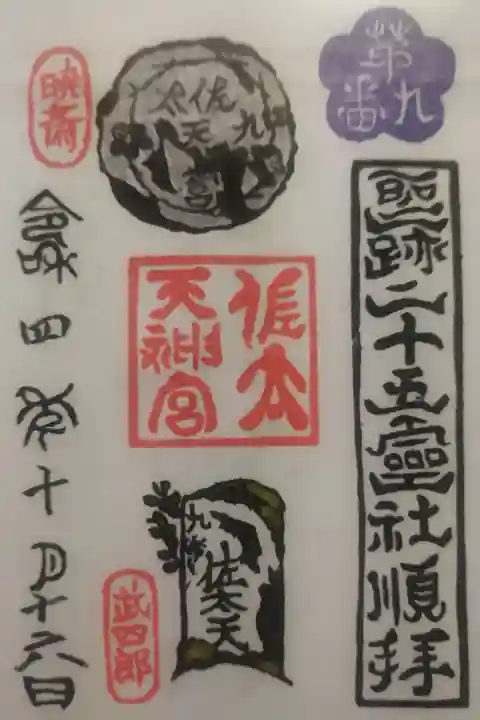 第九番
聖跡二十五霊社順拝
佐太天宮
九
佐太
天神宮
九番
佐太天
映斎
武四郎
令和四年十月十六日